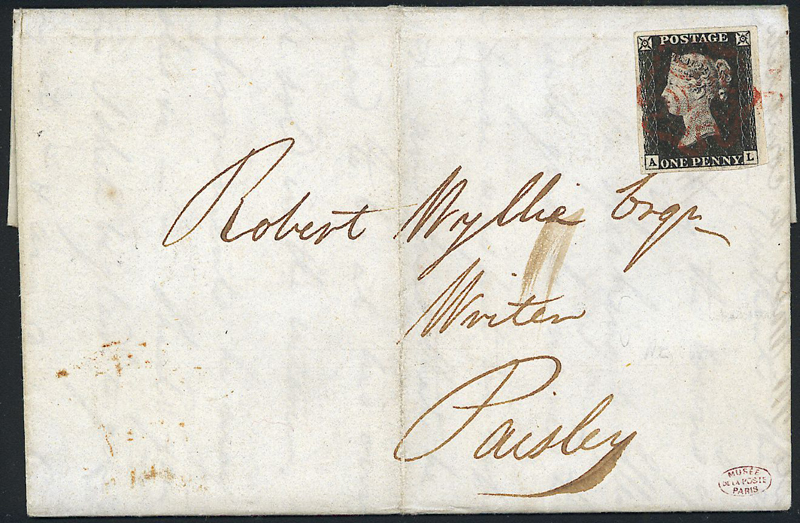 POSTAGE
A ONE PENNY L
Robert Wyllie Esqr
Writer
Paisley
MUSÉE
DE LA POSTE
PARIS